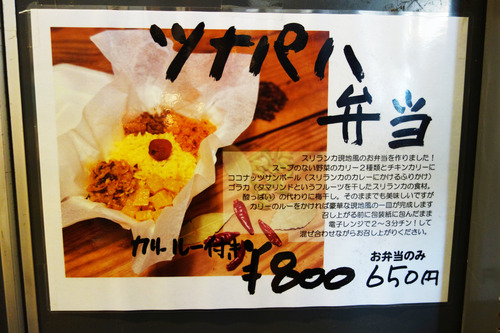 ツナパハ
弁当
スリランカ現地風のお弁当を作りました!
スープのない野菜のカリー2種類とチキンカリーに
ココナッツサンボール(スリランカのカレーにかけるふりかけ)
ゴラカ(タマリンドというフルーツを干したスリランカの食材。
酸っぱい)の代わりに梅干し。そのままでも美味しいですが
カリーのルーをかければ豪華な現地風の一皿が完成します
召し上がる前に包装紙に包んだまま
電子レンジで2〜3分チン!して
混ぜ合わせながらお召し上がりください。
カリールー付き
¥800
お弁当のみ
650円